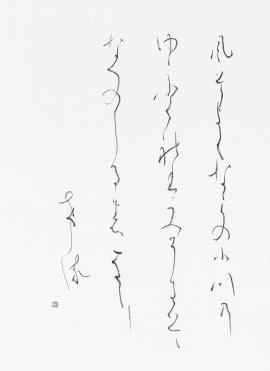 風そよくならの小川乃
ゆふくれはみそきそ
なつのしる志なりける